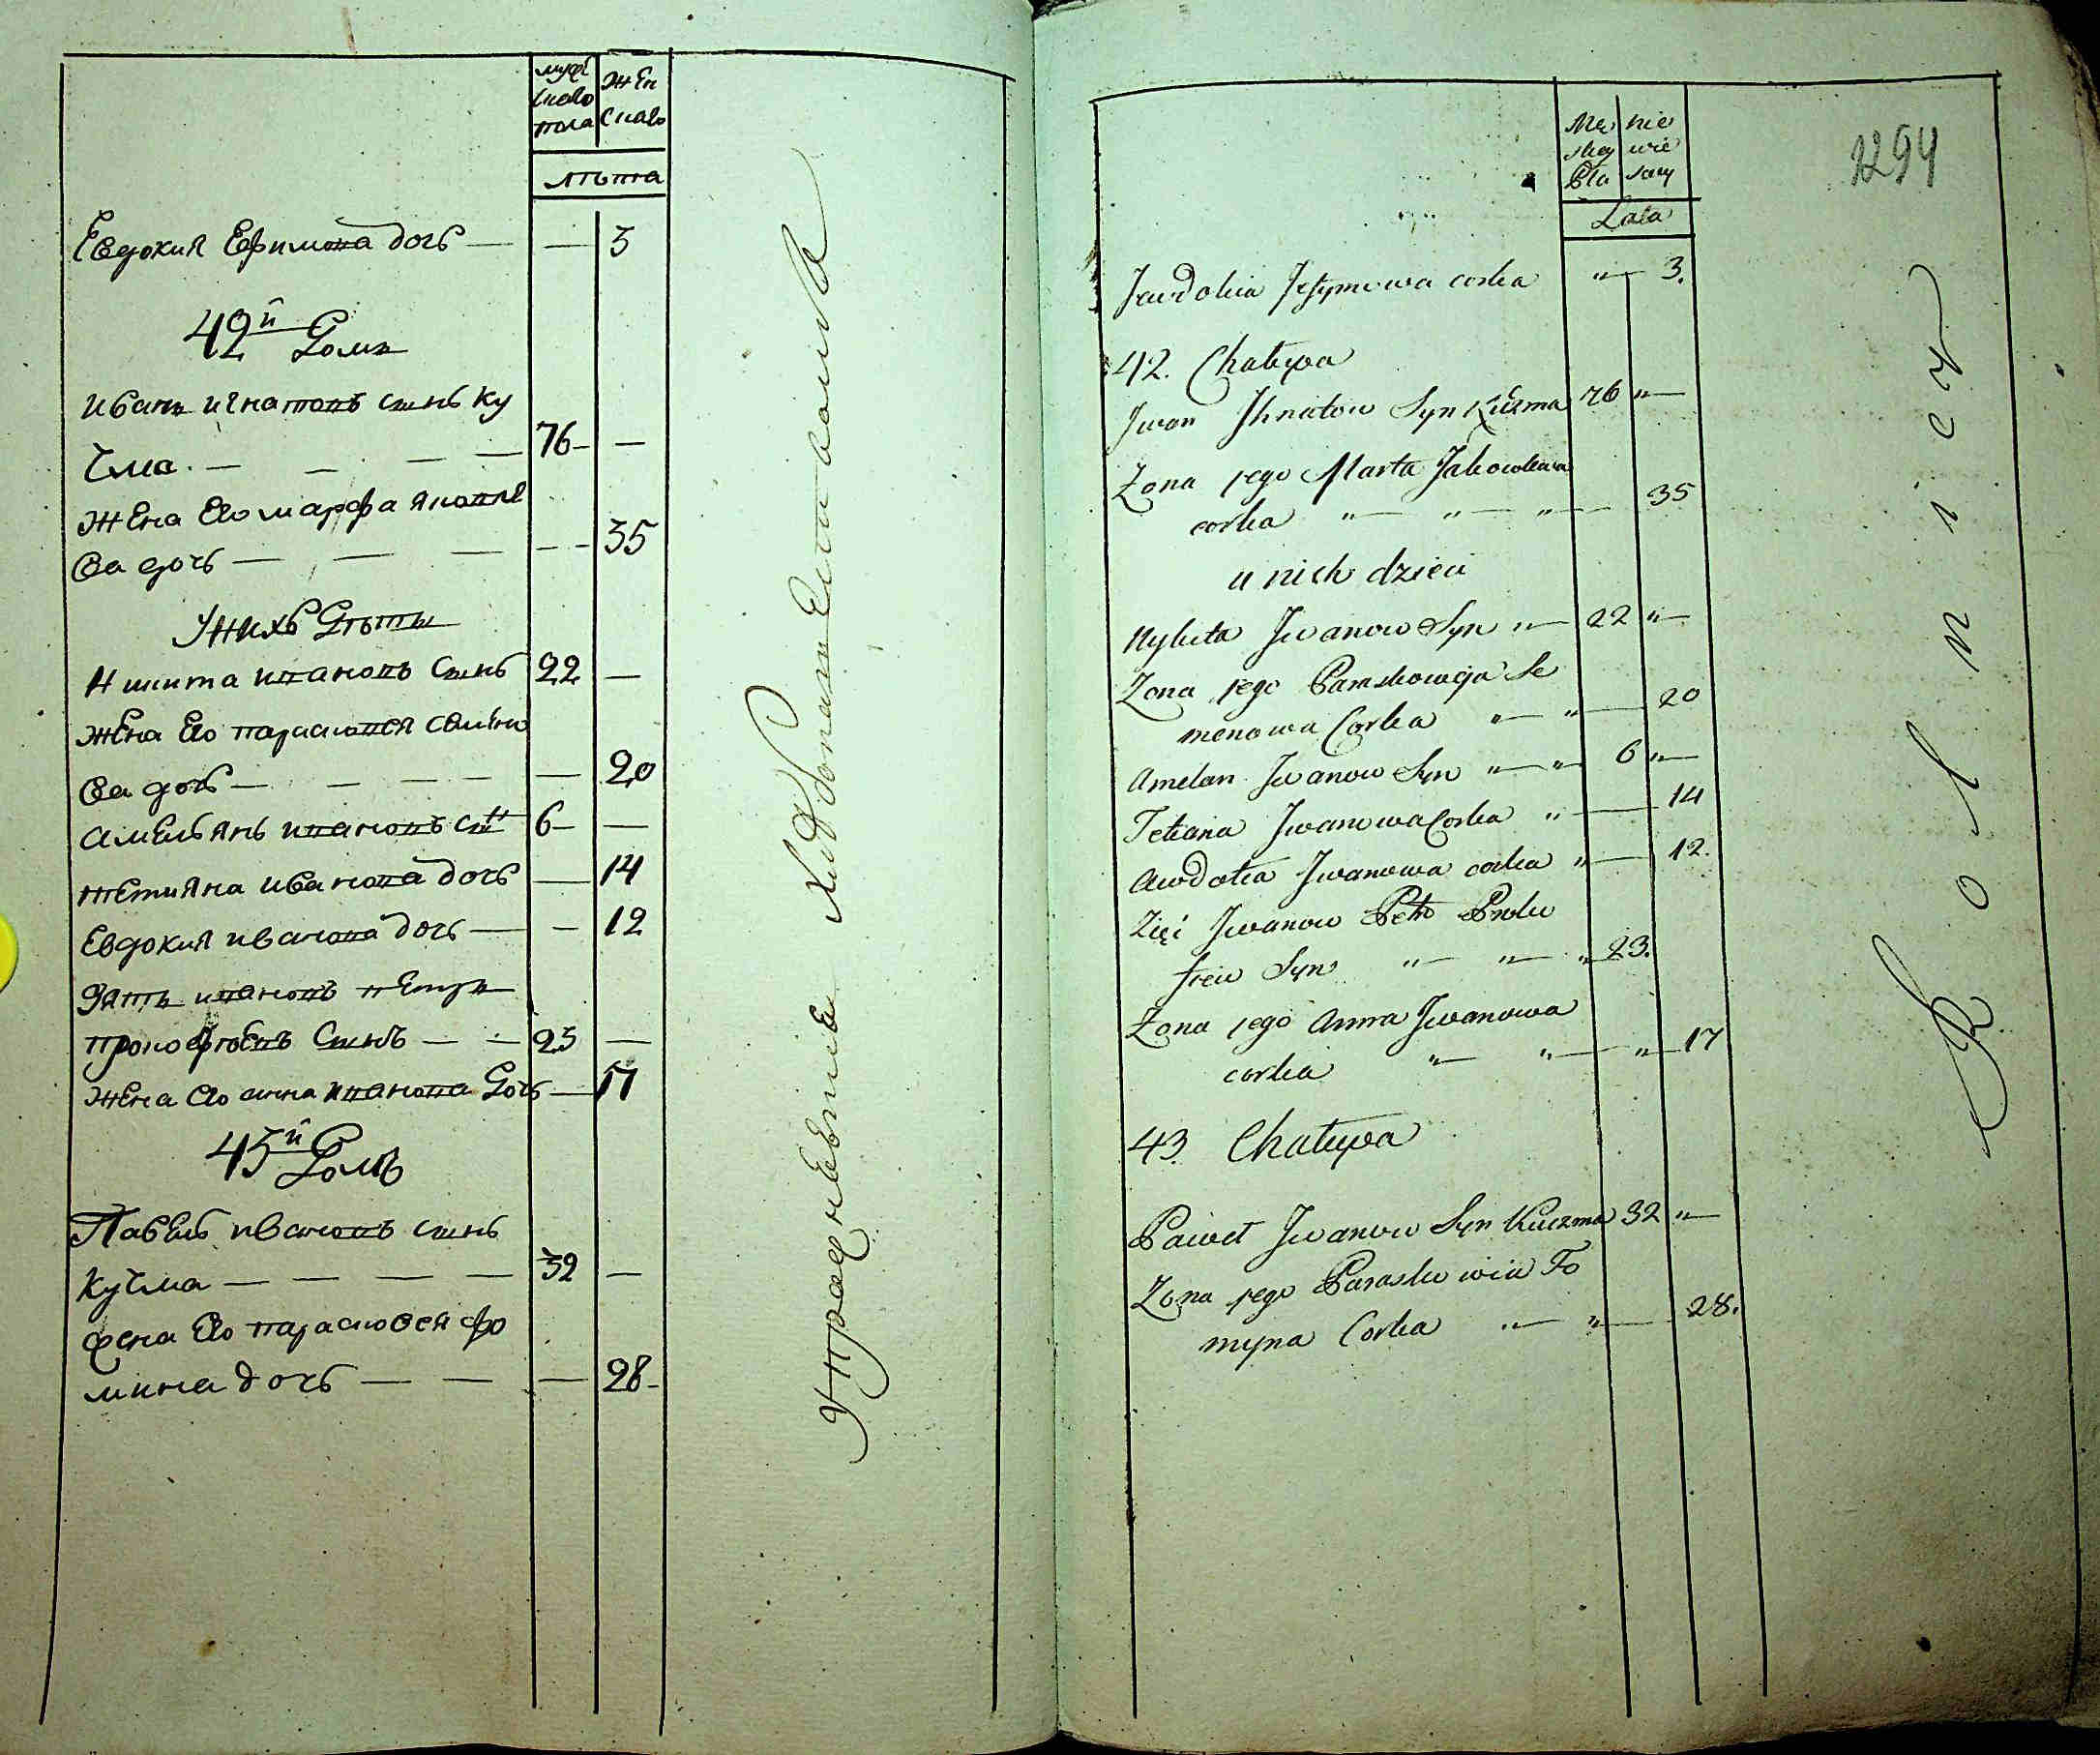 мужескаго пола
женскаго
лѣта
Евдокия Ефимова дочь — — 3
42й Домъ
Иванъ Игнатовъ сынъ Ку
чма. — — — — 76 —
жена его марфа яковле
ва дочь — — — — 35
У нихъ Дѣти
Никита ивановъ сынъ 22 —
жена его парасковея семено
ва дочь — — — — — 20
амельянъ ивановъ сынъ 6 —
тетияна иванова дочь — 14
Евдокия иванова дочь — — 12
зять ивановъ петръ
прокофьевъ сынъ — — 23 —
жена его анна иванова дочь — 17
43й Домъ
Павелъ ивановъ сынъ
кучма — — — — 32 —
жена его парасковея фо
мина дочь — — — 28
Męzkiey Płci
niewieściey
Lata
Jewdokia Jefymowa corka "— 3.
42. Chałupa
Jwan Jhnatow Syn Kuczma 76 "—
Zona jego Marta Jakowlewa
corka "— "— "— 35
u nich dzieci
Nykita Jwanow Syn "— 22 "—
Zona jego Paraskowija Se
menowa Corka "— "— 20
Amelan Jwanow Syn "— "— 6 "—
Tetiana Jwanowa Corka "— 14
Awdotia Jwanowa corka "— 12.
Zięć Jwanow Petro Proko
fiew Syn "— "— " 23.
Zona jego Anna Jwanowa
corka "— "— "— 17
43. Chałupa
Paweł Jwanow Syn Kuczma 32 "—
Zona jego Paraskowia Fo
myna Corka "— "— 28.
1294
Rolnicy